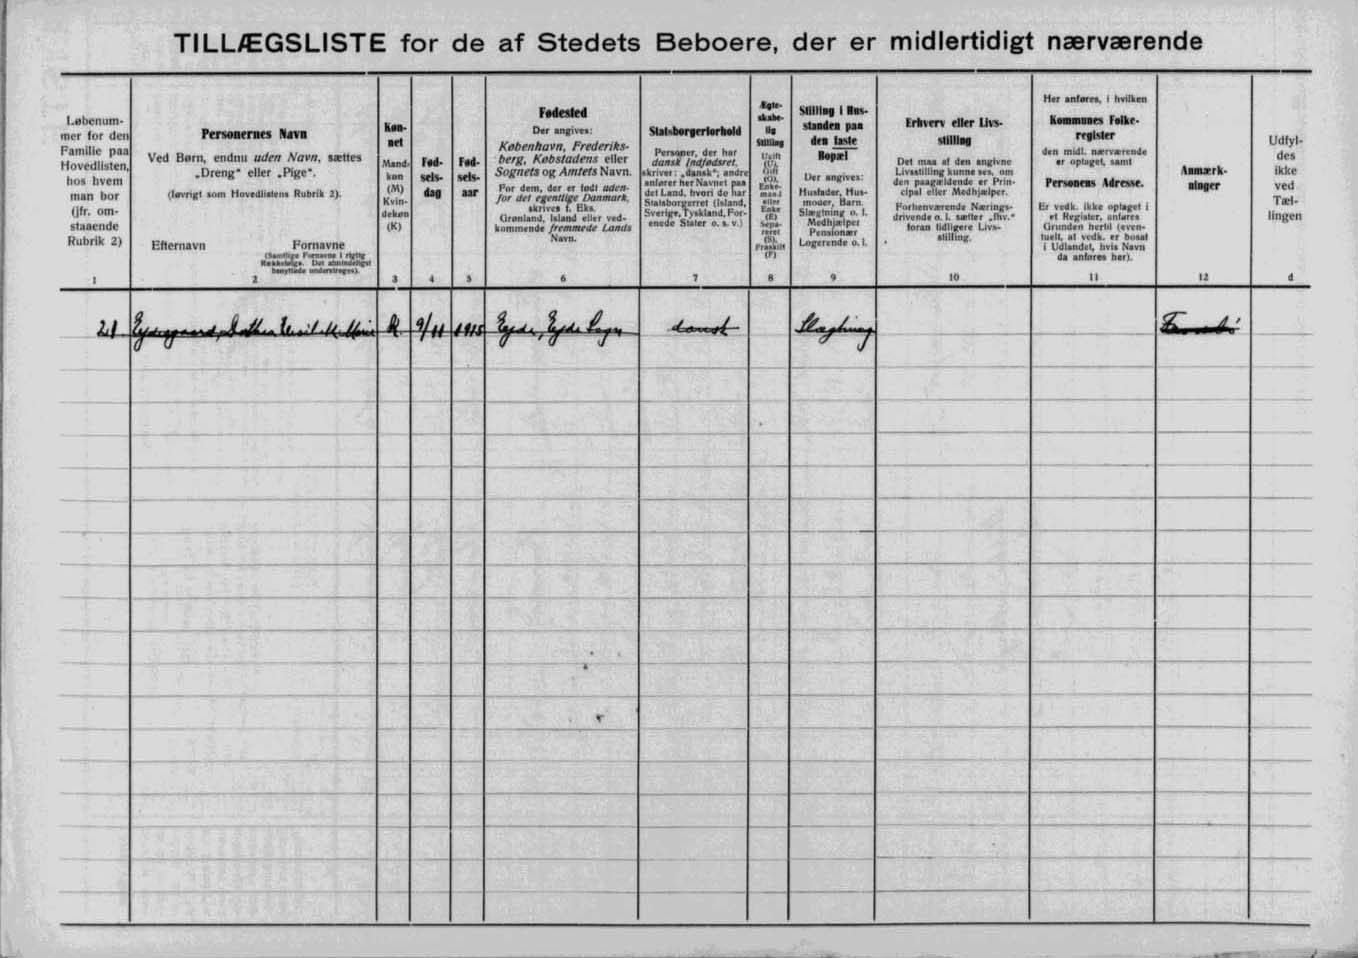 TILLÆGSLISTE for de af Stedets Beboere, der er midlertidigt nærværende
Løbenum-
mer for den
Familie paa
Hovedlisten,
hos hvem
man bor
(jfr. om-
staaende
Rubrik 2)
1
Personernes Navn
Ved Børn, endnu uden Navn, sættes
„Dreng" eller „Pige".
(Iøvrigt som Hovedlistens Rubrik 2).
Efternavn Fornavne
(Samtlige Fornavne i rigtig
Rækkefølge. Det almindeligst
benyttede understreges).
2
Køn-
net
Mand-
køn
(M)
Kvin-
dekøn
(K)
3
Fød-
sels-
dag
4
Fød-
sels-
aar
5
Fødested
Der angives:
København, Frederiks-
berg, Købstadens eller
Sognets og Amtets Navn.
For dem, der er født uden-
for det egentlige Danmark,
skrives f. Eks.
Grønland, Island eller ved-
kommende fremmede Lands
Navn.
6
Statsborgerforhold
Personer, der har
dansk Indfødsret,
skriver: „dansk"; andre
anfører her Navnet paa
det Land, hvori de har
Statsborgerret (Island,
Sverige, Tyskland, For-
enede Stater o. s. v.)
7
Ægte-
skabe-
lig
Stilling
Ugift
(U),
Gift
(G),
Enke-
mand
eller
Enke
(E)
Sepa-
reret
(S),
Fraskilt
(F)
8
Stilling i Hus-
standen paa
den faste
Bopæl
Der angives:
Husfader, Hus-
moder, Barn,
Slægtning o. l.
Medhjælper
Pensionær
Logerende o. l.
9
Erhverv eller Livs-
stilling
Det maa af den angivne
Livsstilling kunne ses, om
den paagældende er Prin-
cipal eller Medhjælper.
Forhenværende Nærings-
drivende o. l. sætter „fhv."
foran tidligere Livs-
stilling.
10
Her anføres, i hvilken
Kommunes Folke-
register
den midl. nærværende
er optaget, samt
Personens Adresse.
Er vedk. ikke optaget i
et Register, anføres
Grunden hertil (even-
tuelt, at vedk. er bosat
i Udlandet, hvis Navn
da anføres her).
11
Anmærk-
ninger
12
Udfyl-
des
ikke
ved
Tæl-
lingen
d
21 K. 9/11 1915 Egde, Egde Sogn dansk Slægtning